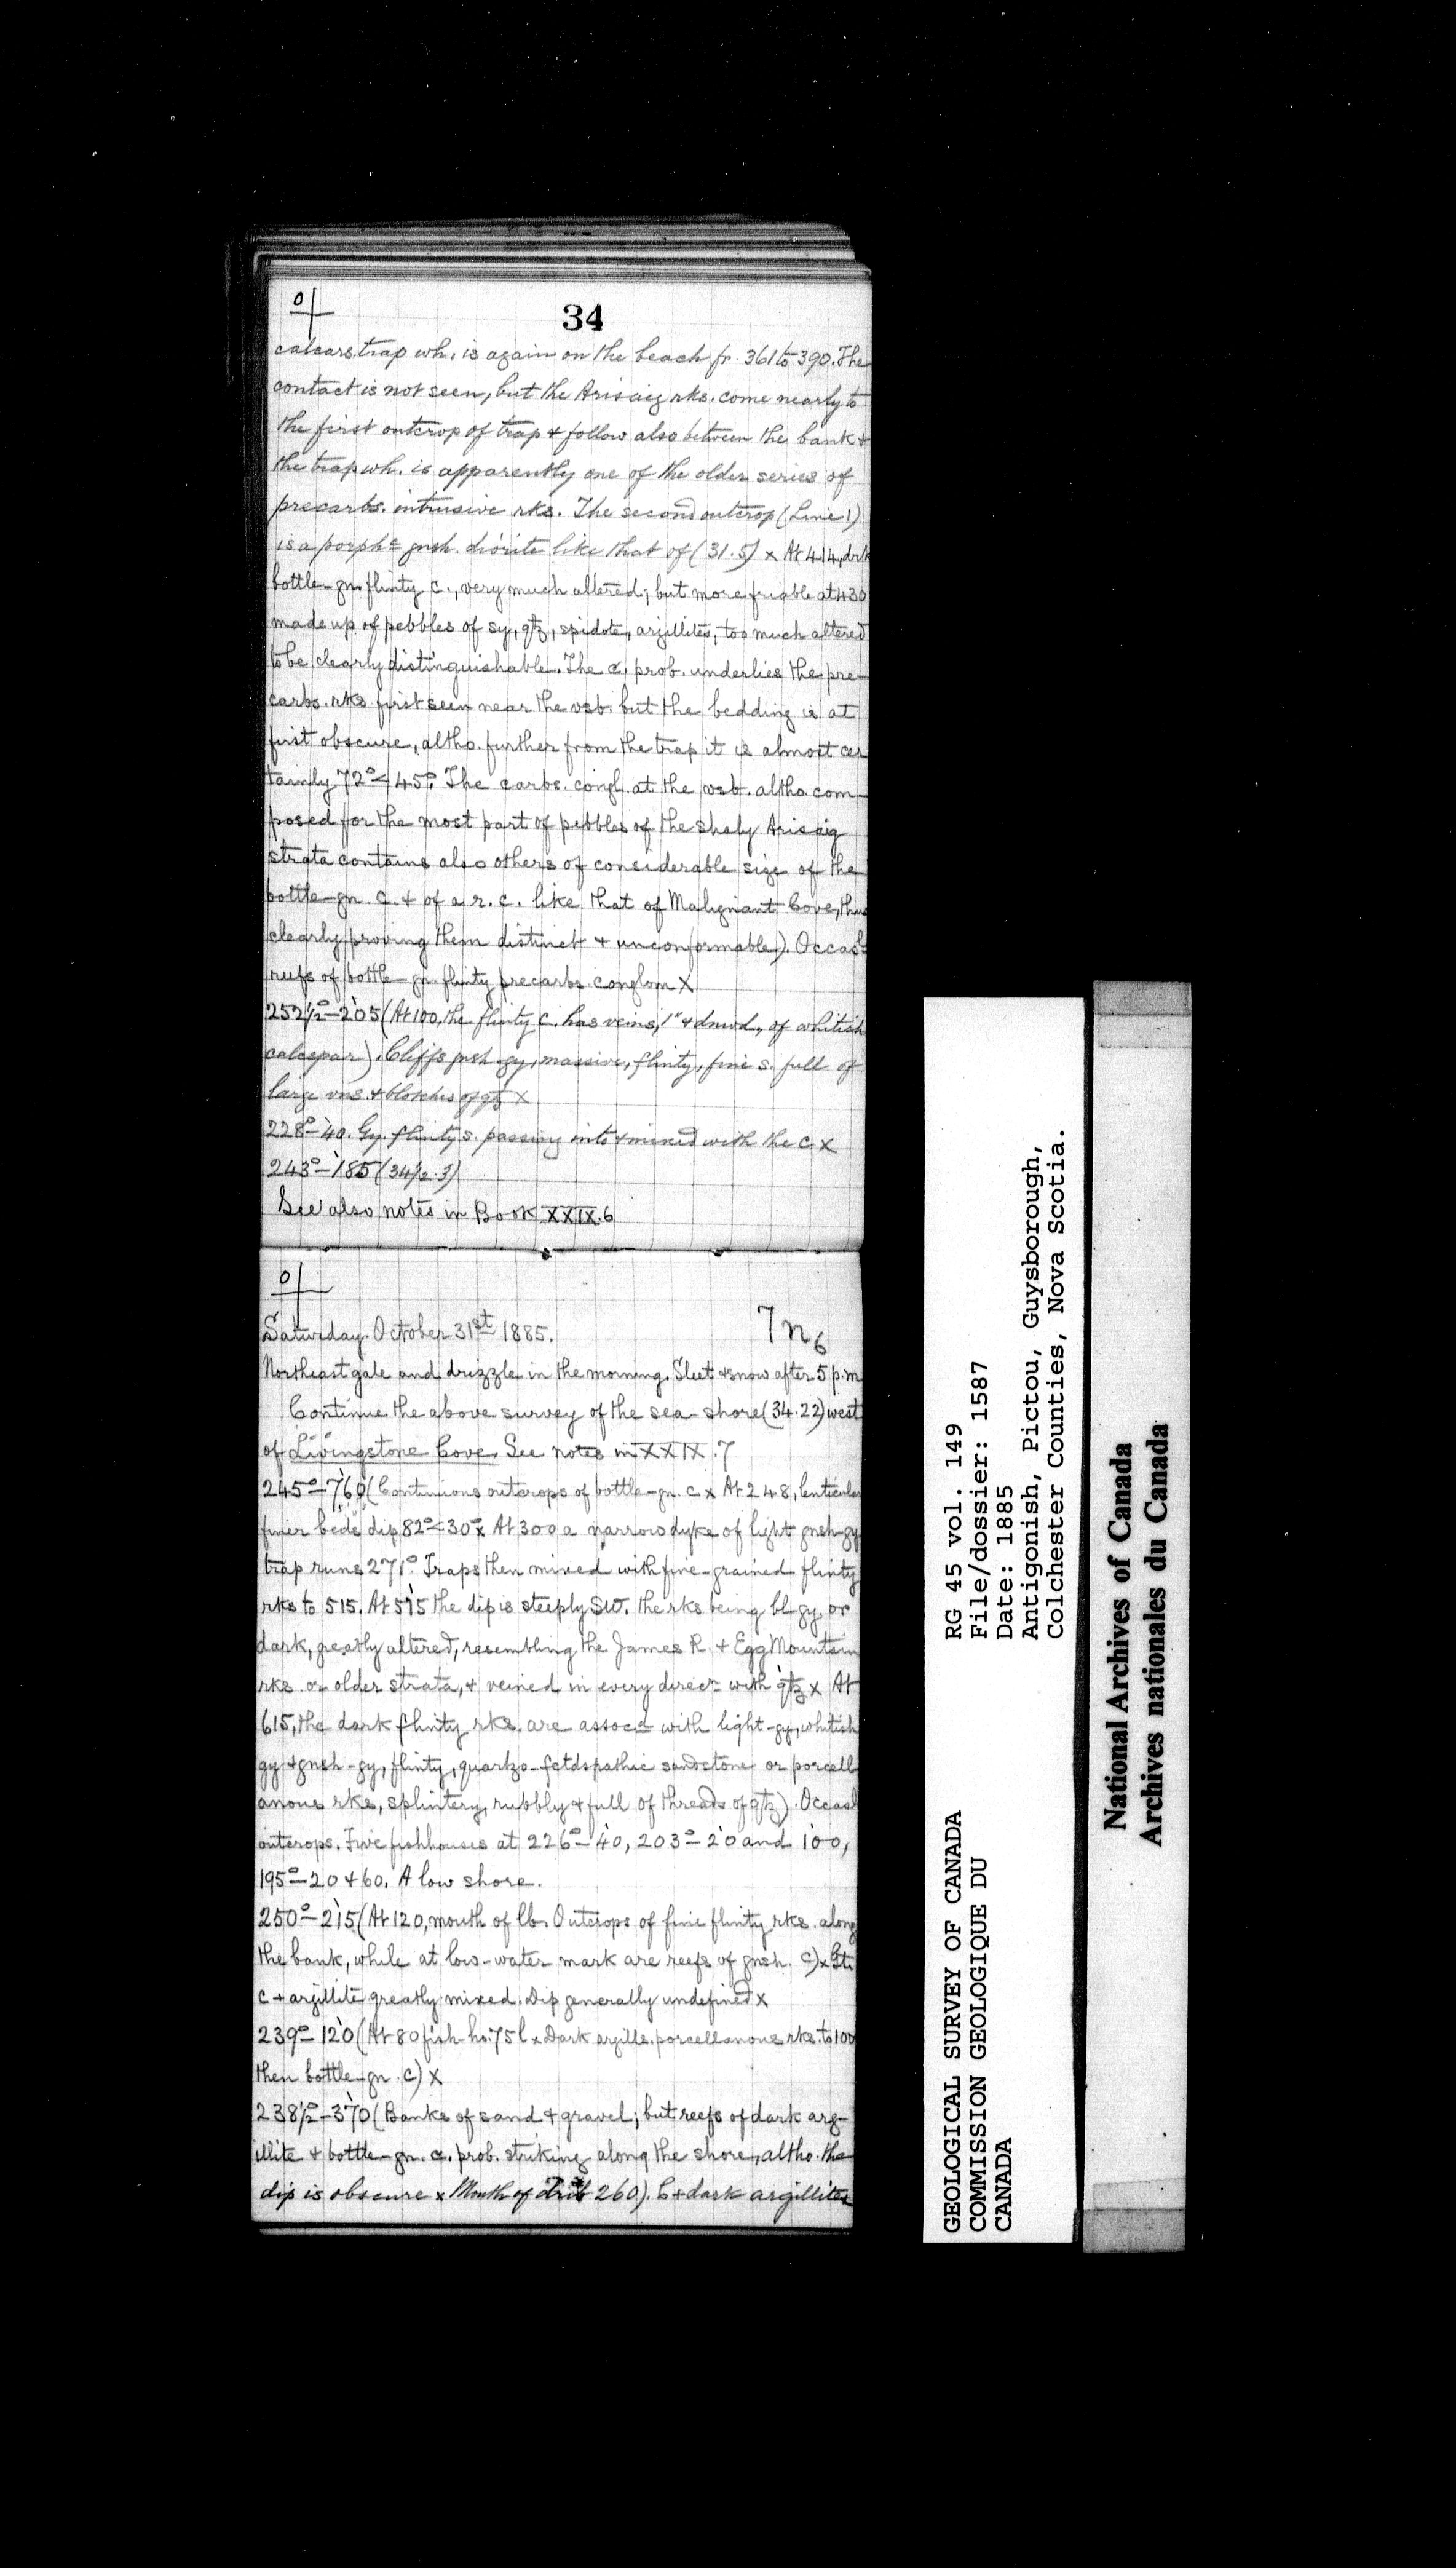 0
34
calcars. trap wh. is again on the beach fr. 361 to 390. The
contact is not seen, but the Arisaig rks. come nearly to
the first outcrop of trap & follow also between the bank &
the trap wh. is apparently one of the older series of
precarbs. intrusive rks. The second outcrop (Line 1)
is a porphc gnsh. diorite like that of (31.5) x At 414, drk
bottle-gn. flinty c., very much altered; but more friable at 430
made up of pebbles of sy, qtz, epidote, argillites, too much altered
to be clearly distinguishable. The c. prob. underlies the pre-
carbs. rks. first seen near the vsb. but the bedding is at
first obscure, altho. further from the trap it is almost cer
tainly 72°<45°. The carbs. congl. at the vsb. altho. com-
posed for the most part of pebbles of the shaly Arisaig
strata contains also others of considerable size of the
bottle-gn. c. & of a r. c. like that of Malignant Cove, thus
clearly proving them distinct & unconformable). Occasl
reefs of bottle-gn. flinty precarbs. conglom X
252½°-205 (At 100, the flinty c. has veins, 1" & dnwd., of whitish
calcspar). Cliffs gnsh-gy, massive, flinty, fine s. full of
large vns. & blotches of qtz X
228°-40. Gy. flinty s. passing into & mixed with the c X
243°-185 (34½.3)
See also notes in Book XXIX.6
0
Saturday. October 31st 1885.
7n6
Northeast gale and drizzle in the morning. Sleet & snow after 5 p.m
Continue the above survey of the sea-shore (34.22) west
of Livingstone Cove. See notes in XXIX.7
245°-760 (Continuous outcrops of bottle-gn. c x At 248, lenticular
finer beds dip 82°<30° x At 300 a narrow dyke of light gnsh-gy
trap runs 271°. Traps then mixed with fine-grained flinty
rks to 515. At 515 the dip is steeply SW. the rks being bl-gy. or
dark, greatly altered, resembling the James R. & Egg Mountain
rks. or older strata, & veined in every direcn with qtz x At
615, the dark flinty rks. are assocd with light-gy, whitish
gy & gnsh-gy, flinty, quartzo-feldspathic sandstone or porcell
anous rks, splintery, rubbly & full of threads of qtz). Occasl
outcrops. Five fishhouses at 226°-40, 203°-20 and 100,
195°-20 & 60. A low shore.
250°-215 (At 120, mouth of lb. Outcrops of fine flinty rks. along
the bank, while at low-water mark are reefs of gnsh. c) x
c & argillite greatly mixed. Dip generally undefined x
239°-120 (At 80 fish-ho. 75 l x Dark argills. porcellanous rks. to 100
then bottle-gn. c) X
238½°-370 (Banks of sand & gravel; but reefs of dark arg-
illite & bottle-gn. c. prob. striking along the shore, altho. the
dip is obscure x Mouth of drib 260). C & dark argillites
GEOLOGICAL SURVEY OF CANADA
COMMISSION GEOLOGIQUE DU
CANADA
RG 45 vol. 149
File/dossier: 1587
Date: 1885
Antigonish, Pictou, Guysborough,
Colchester Counties, Nova Scotia.
National Archives of Canada
Archives nationales du Canada